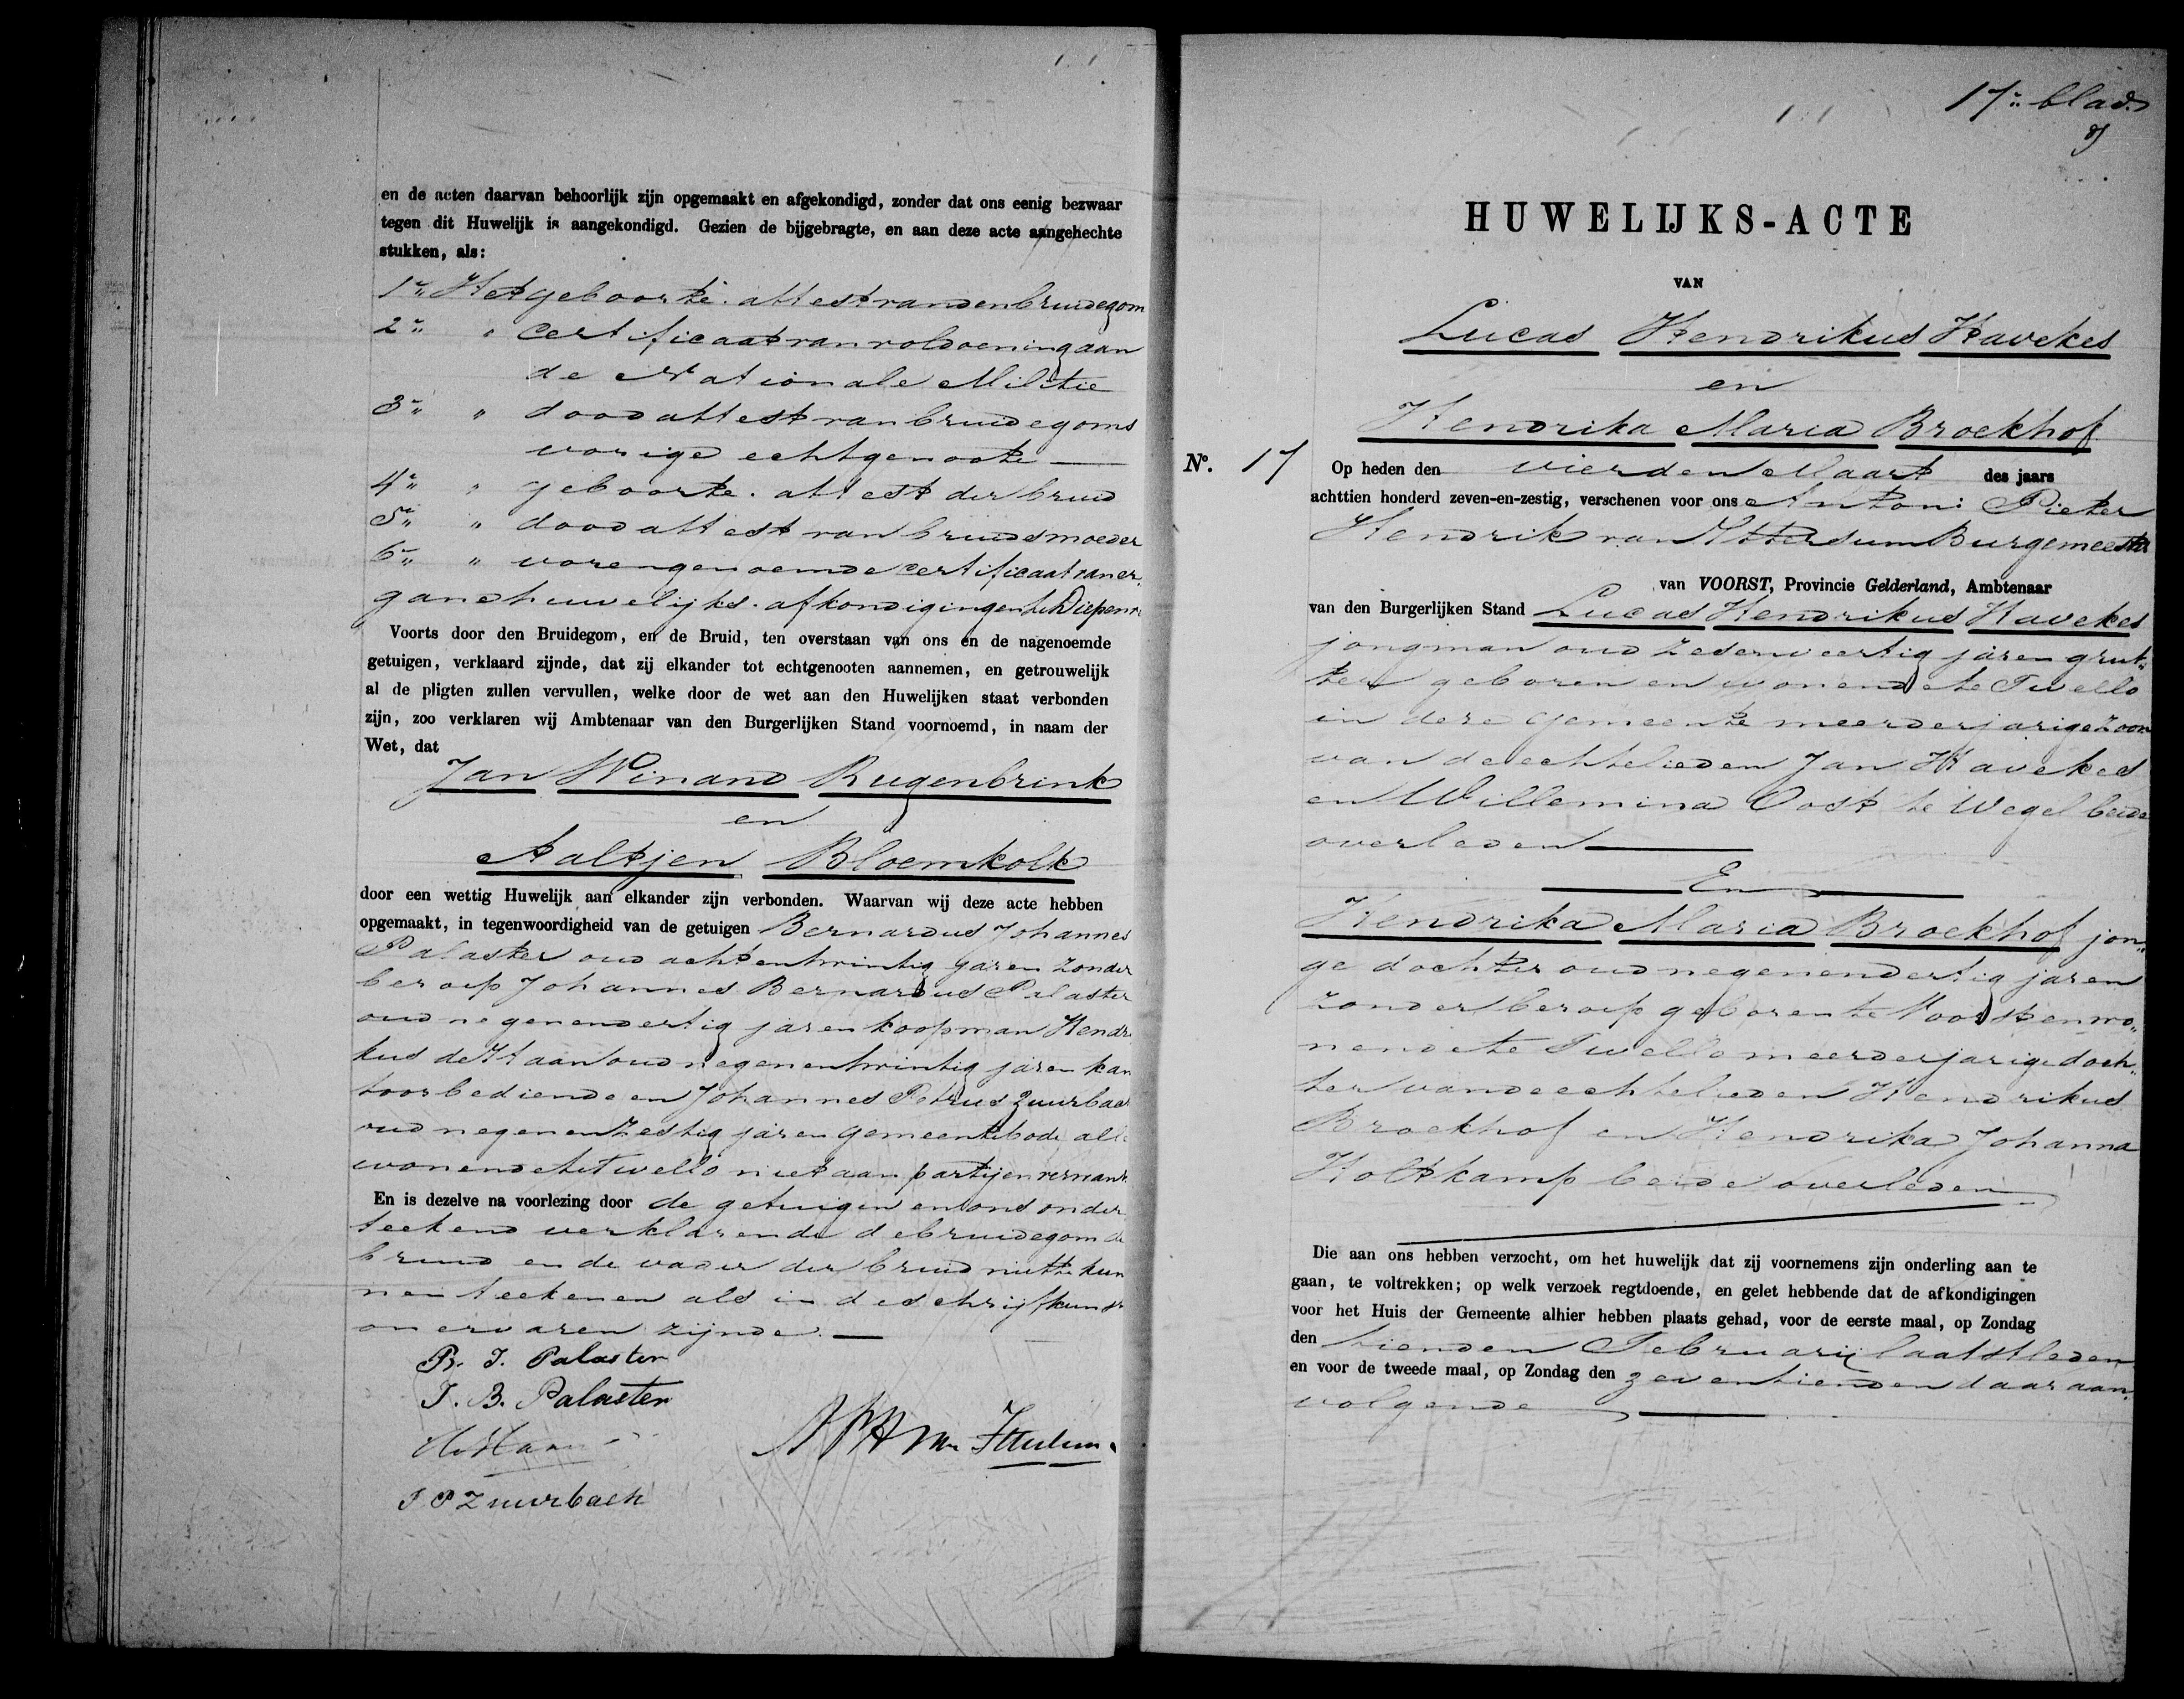 en de acten daarvan behoorlijk zijn opgemaakt en afgekondigd, zonder dat ons eenig bezwaar
tegen dit Huwelijk is aangekondigd. Gezien de bijgebragte, en aan deze acte aangehechte
stukken, als:
1e Het geboorte. attest van den bruidegom
2e " Certificaat van voldoening aan
de Nationale Militie
3e " dood attest van bruidegoms
vorige echtgenoote
4e " geboorte. attest der bruid
5e " dood attest van bruidsmoeder
6e " vorengenoemde certificaat van er-
gane huwelijks. afkondigingen te Diepenv
Voorts door den Bruidegom, en de Bruid, ten overstaan van ons en de nagenoemde
getuigen, verklaard zijnde, dat zij elkander tot echtgenooten aannemen, en getrouwelijk
al de pligten zullen vervullen, welke door de wet aan den Huwelijken staat verbonden
zijn, zoo verklaren wij Ambtenaar van den Burgerlijken Stand voornoemd, in naam der
Wet, dat
Jan Winand Rugenbrink
en
Aaltjen Bloemkolk
door een wettig Huwelijk aan elkander zijn verbonden. Waarvan wij deze acte hebben
opgemaakt, in tegenwoordigheid van de getuigen Bernardus Johannes
Palaster oud achtentwintig jaren zonder
beroep Johannes Bernardus Palaster
oud negenendertig jaren koopman Hendri
kus de Haan oud negenentwintig jaren kan
toorbediende en Johannes Petrus Zuurbach
oud negenenzestig jaren gemeentebode alle
wonende te Twello niet aan partijen vermant
En is dezelve na voorlezing door de getuigen en ons onder
teekend verklarende de bruidegom de
bruid en de vader der bruid niet te kun
nen teekenen als in de schrijfkunst
onervaren zijnde.
B. J. Palaster
J. B. Palaster
H d Haan
A P H van Ittersum
J P Zuurbach
17e blad
HUWELIJKS-ACTE
VAN
Lucas Hendrikus Havekes
en
Hendrika Maria Broekhof
No. 17 Op heden den vierden Maart des jaars
achttien honderd zeven-en-zestig, verschenen voor ons Antoni Pieter
Hendrik van Ittersum Burgemeester
van VOORST, Provincie Gelderland, Ambtenaar
van den Burgerlijken Stand Lucas Hendrikus Havekes
jongman oud zesenveertig jaren grut-
ter geboren en wonende te Twello
in deze gemeente meerderjarige zoon
van de echtelieden Jan Havekes
en Willemina Oost te Wegel beide
overleden
En
Hendrika Maria Broekhof jon-
ge dochter oud negenendertig jaren
zonder beroep geboren te Voorst en wo-
nende te Twello meerderjarige doch-
ter van de echtelieden Hendrikus
Broekhof en Hendrika Johanna
Holtkamp beide overleden
Die aan ons hebben verzocht, om het huwelijk dat zij voornemens zijn onderling aan te
gaan, te voltrekken; op welk verzoek regtdoende, en gelet hebbende dat de afkondigingen
voor het Huis der Gemeente alhier hebben plaats gehad, voor de eerste maal, op Zondag
den tienden Februarij laatstleden
en voor de tweede maal, op Zondag den zeventienden daaraan-
volgende